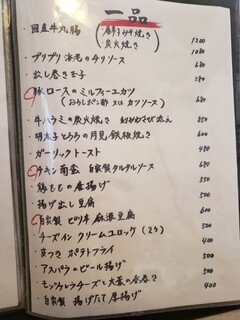 一品
・国産牛丸腸 (自家製みそ焼き 炭火焼き) 1200
・プリプリ海老のチリソース 1080
・出し巻き玉子 680
・豚ロースのミルフィーユカツ
(おろしポン酢 又は カツソース) 680
・牛ハラミの炭火焼き わさび 850
・明太子とろろの月見鉄板焼き 680
・ガーリックトースト 480
・チキン南蛮 自家製タルタルソース 680
・鶏ももの唐揚げ 550
・揚げ出し豆腐 500
・自家製 ピリ辛 麻婆豆腐 600
・チーズイン クリームコロッケ (2ケ) 400
・皮つき ポテトフライ 500
・アスパラのビール揚げ 500
・モッツァレラチーズと大葉の春巻き 500
・自家製 揚げたて厚揚げ 400